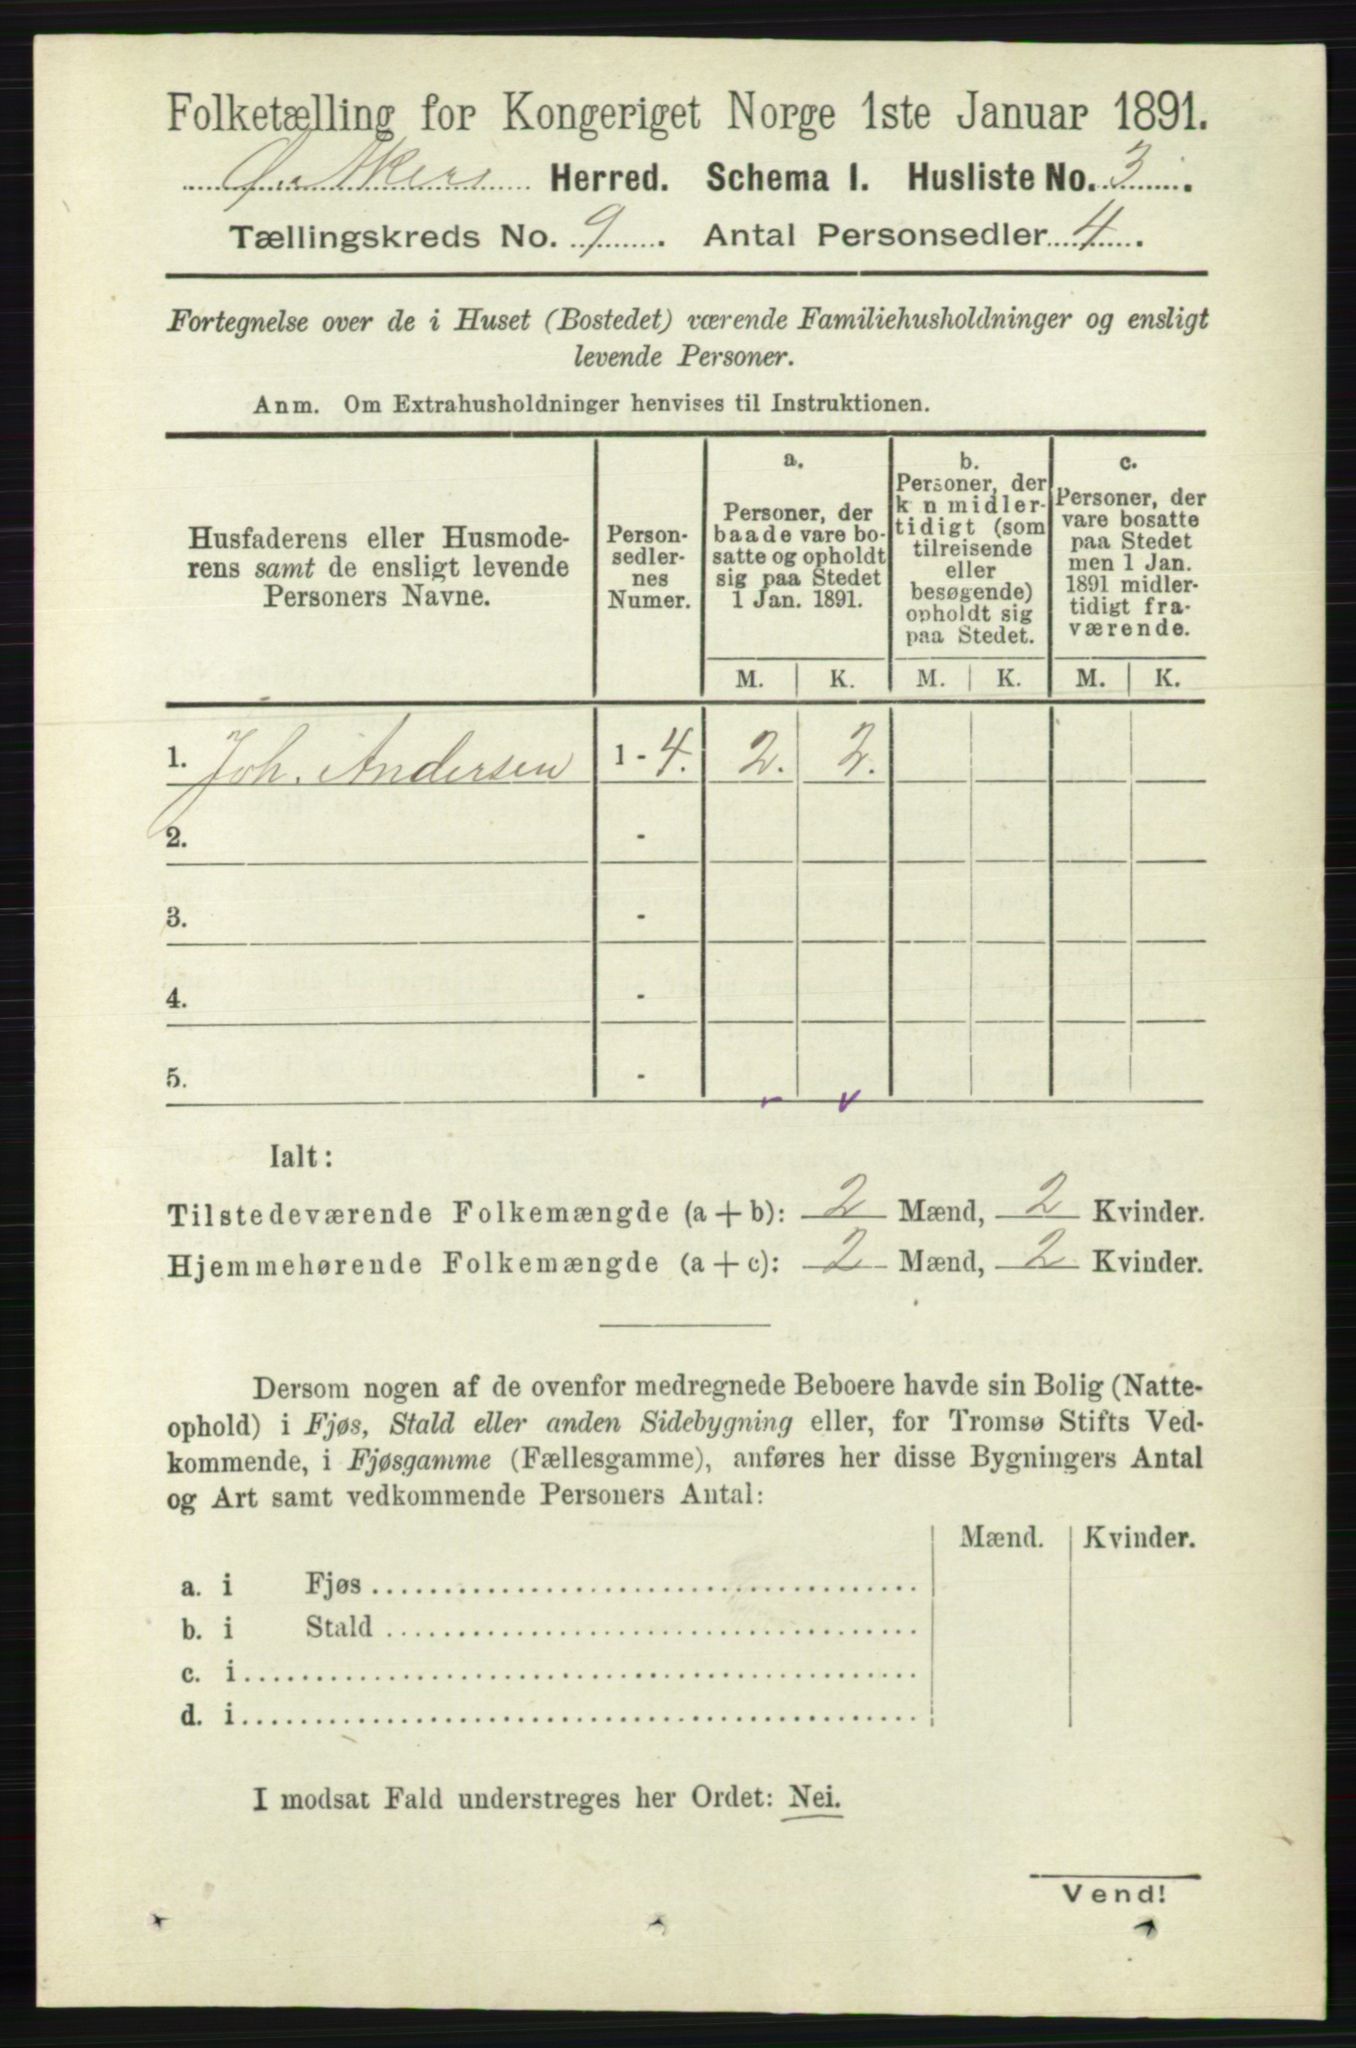 Folketælling for Kongeriget Norge 1ste Januar 1891.
Akers Herred. Schema 1. Husliste No. 3.
Tællingskreds No. 9. Antal Personsedler 4.
Fortegnelse over de i Huset (Bostedet) værende Familiehusholdninger og ensligt
levende Personer.
Anm. Om Extrahusholdninger henvises til Instruktionen.
Husfaderens eller Husmode-
rens samt de ensligt levende
Personers Navne.
Person-
sedler-
nes
Numer.
a.
Personer, der
baade vare bo-
satte og opholdt
sig paa Stedet
1 Jan. 1891.
b.
Personer, der
k n midler-
tidigt (som
tilreisende
eller
besøgende)
opholdt sig
paa Stedet.
c.
Personer, der
vare bosatte
paa Stedet
men 1 Jan.
1891 midler-
tidigt fra-
værende.
M. K. M. K. M. K.
1. Joh. Andersen 1 - 4. 2. 2.
2. -
3. -
4. -
5. -
Ialt:
Tilstedeværende Folkemængde (a + b): 2 Mænd, 2 Kvinder.
Hjemmehørende Folkemængde (a + c): 2 Mænd, 2 Kvinder.
Dersom nogen af de ovenfor medregnede Beboere havde sin Bolig (Natte-
ophold) i Fjøs, Stald eller anden Sidebygning eller, for Tromsø Stifts Ved-
kommende, i Fjøsgamme (Fællesgamme), anføres her disse Bygningers Antal
og Art samt vedkommende Personers Antal:
Mænd. Kvinder.
a. i Fjøs
b. i Stald
c. i
d. i
I modsat Fald understreges her Ordet: Nei.
Vend!